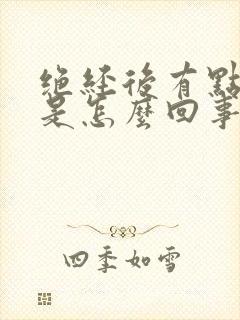 絕經後有點
是怎麼回事
四季如雪